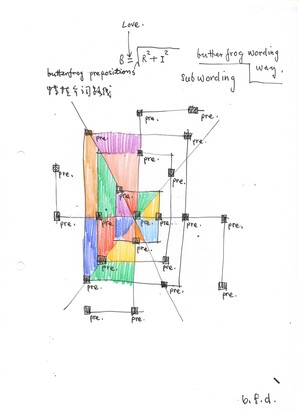 Love.
B = √R²+I²
butterfrog wording
way.
subwording
butterfrog prepositions
pre.
pre.
pre.
pre.
pre.
pre.
pre.
pre.
pre.
pre.
pre.
pre.
pre.
pre.
pre.
pre.
pre.
pre.
b.f.d.